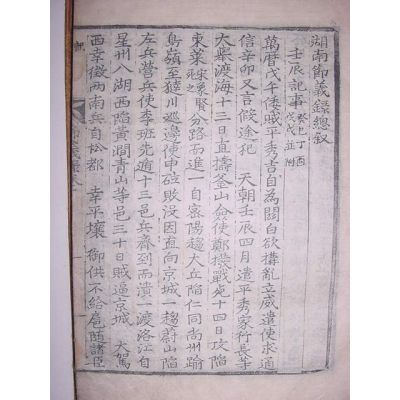 湖南節義錄總叙
壬辰記事 癸巳丁酉戊戌並附
萬曆戊子倭賊平秀吉自為關白欲構亂立威遣使求通
信辛卯又言假途犯 天朝壬辰四月遣平秀家行長等
大擧渡海十三日直擣釜山僉使鄭撥戰死十四日攻陷
東萊 宋象賢死之 分路而進一自密陽趨大丘陷仁同尚州踰
鳥嶺至㺚川巡邊使申砬敗沒因直向京城一趨蔚山陷
左兵營兵使李珏先遁十三邑兵齊到而潰一渡洛江自
星州入湖西陷黃澗青山等邑三十日賊逼京城 大駕
西幸徵兩南兵自松都 幸平壤 御供不給扈隨諸臣